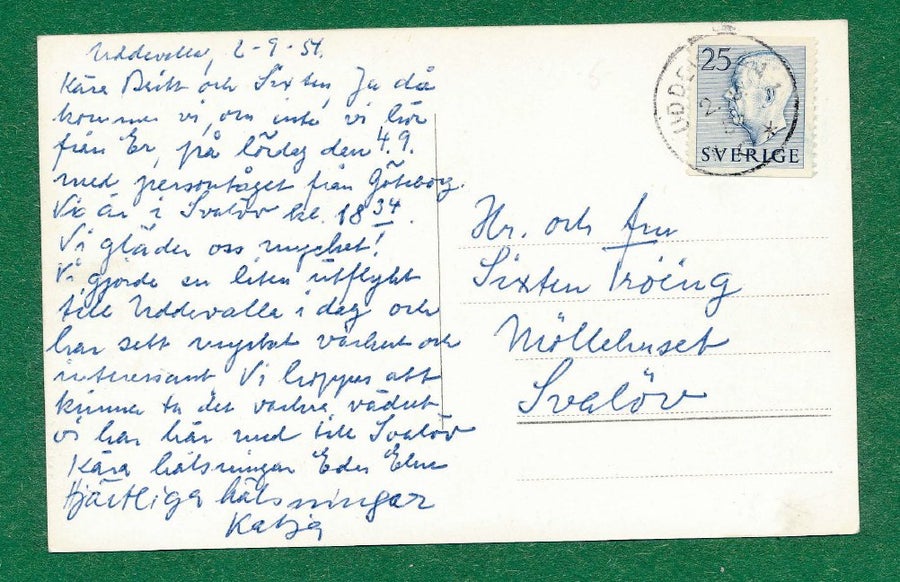 Uddevalla, 2-9-54.
Kära Britt och Sixten, Ja då
kommer vi, om inte vi hör
från Er, på lördag den 4.9.
med persontåget från Göteborg.
Vi är i Svalöv kl. 18 34.
Vi gläder oss mycket!
Vi gjorde en liten utflykt
till Uddevalla i dag och
har sett mycket vackert och
interessant. Vi hoppas att
kunna ta det vackra vädret
vi har här med till Svalöv
Kära hälsningar Eder
Hjärtliga hälsningar
Katja
25
SVERIGE
UDDEVALLA
Hr. och fru
Sixten Tröëng
Möllehuset
Svalöv